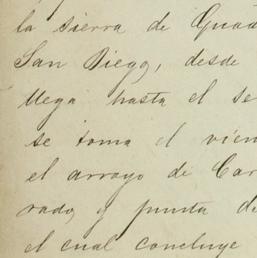 la sierra de Guad
San Diego, desde
llega hasta el se
se toma el vien
el arroyo de Car
rado, y punta de
el cual concluye